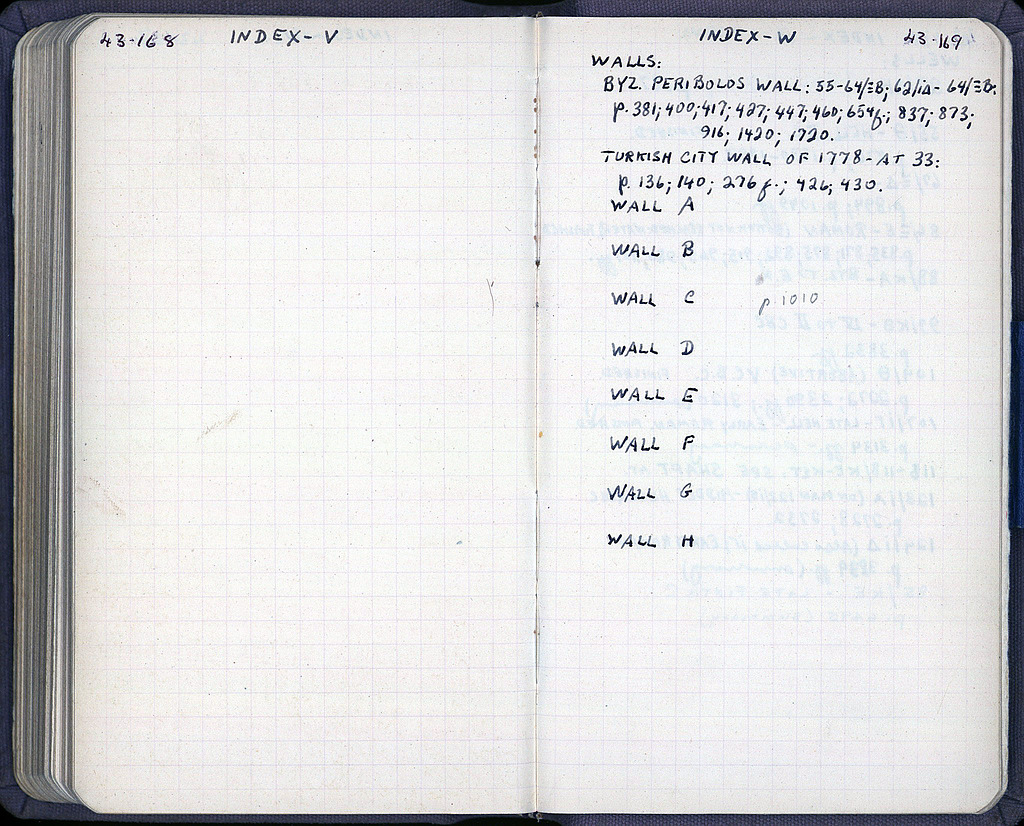 43-168 INDEX-V
INDEX-W 43-169
WALLS:
BYZ. PERIBOLOS WALL: 55-64/ΞΒ; 62/ιΔ-64/ΞΒ.
p. 381; 400; 417; 427; 447; 460; 654f.; 837; 873;
916; 1420; 1720.
TURKISH CITY WALL OF 1778-AT 33:
p. 136; 140; 276f.; 426; 430.
WALL A
WALL B
WALL C p 1010
WALL D
WALL E
WALL F
WALL G
WALL H